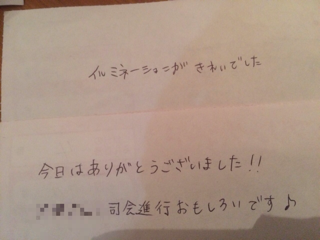 イルミネーションがきれいでした
今日はありがとうございました!!
司会進行おもしろいです♪